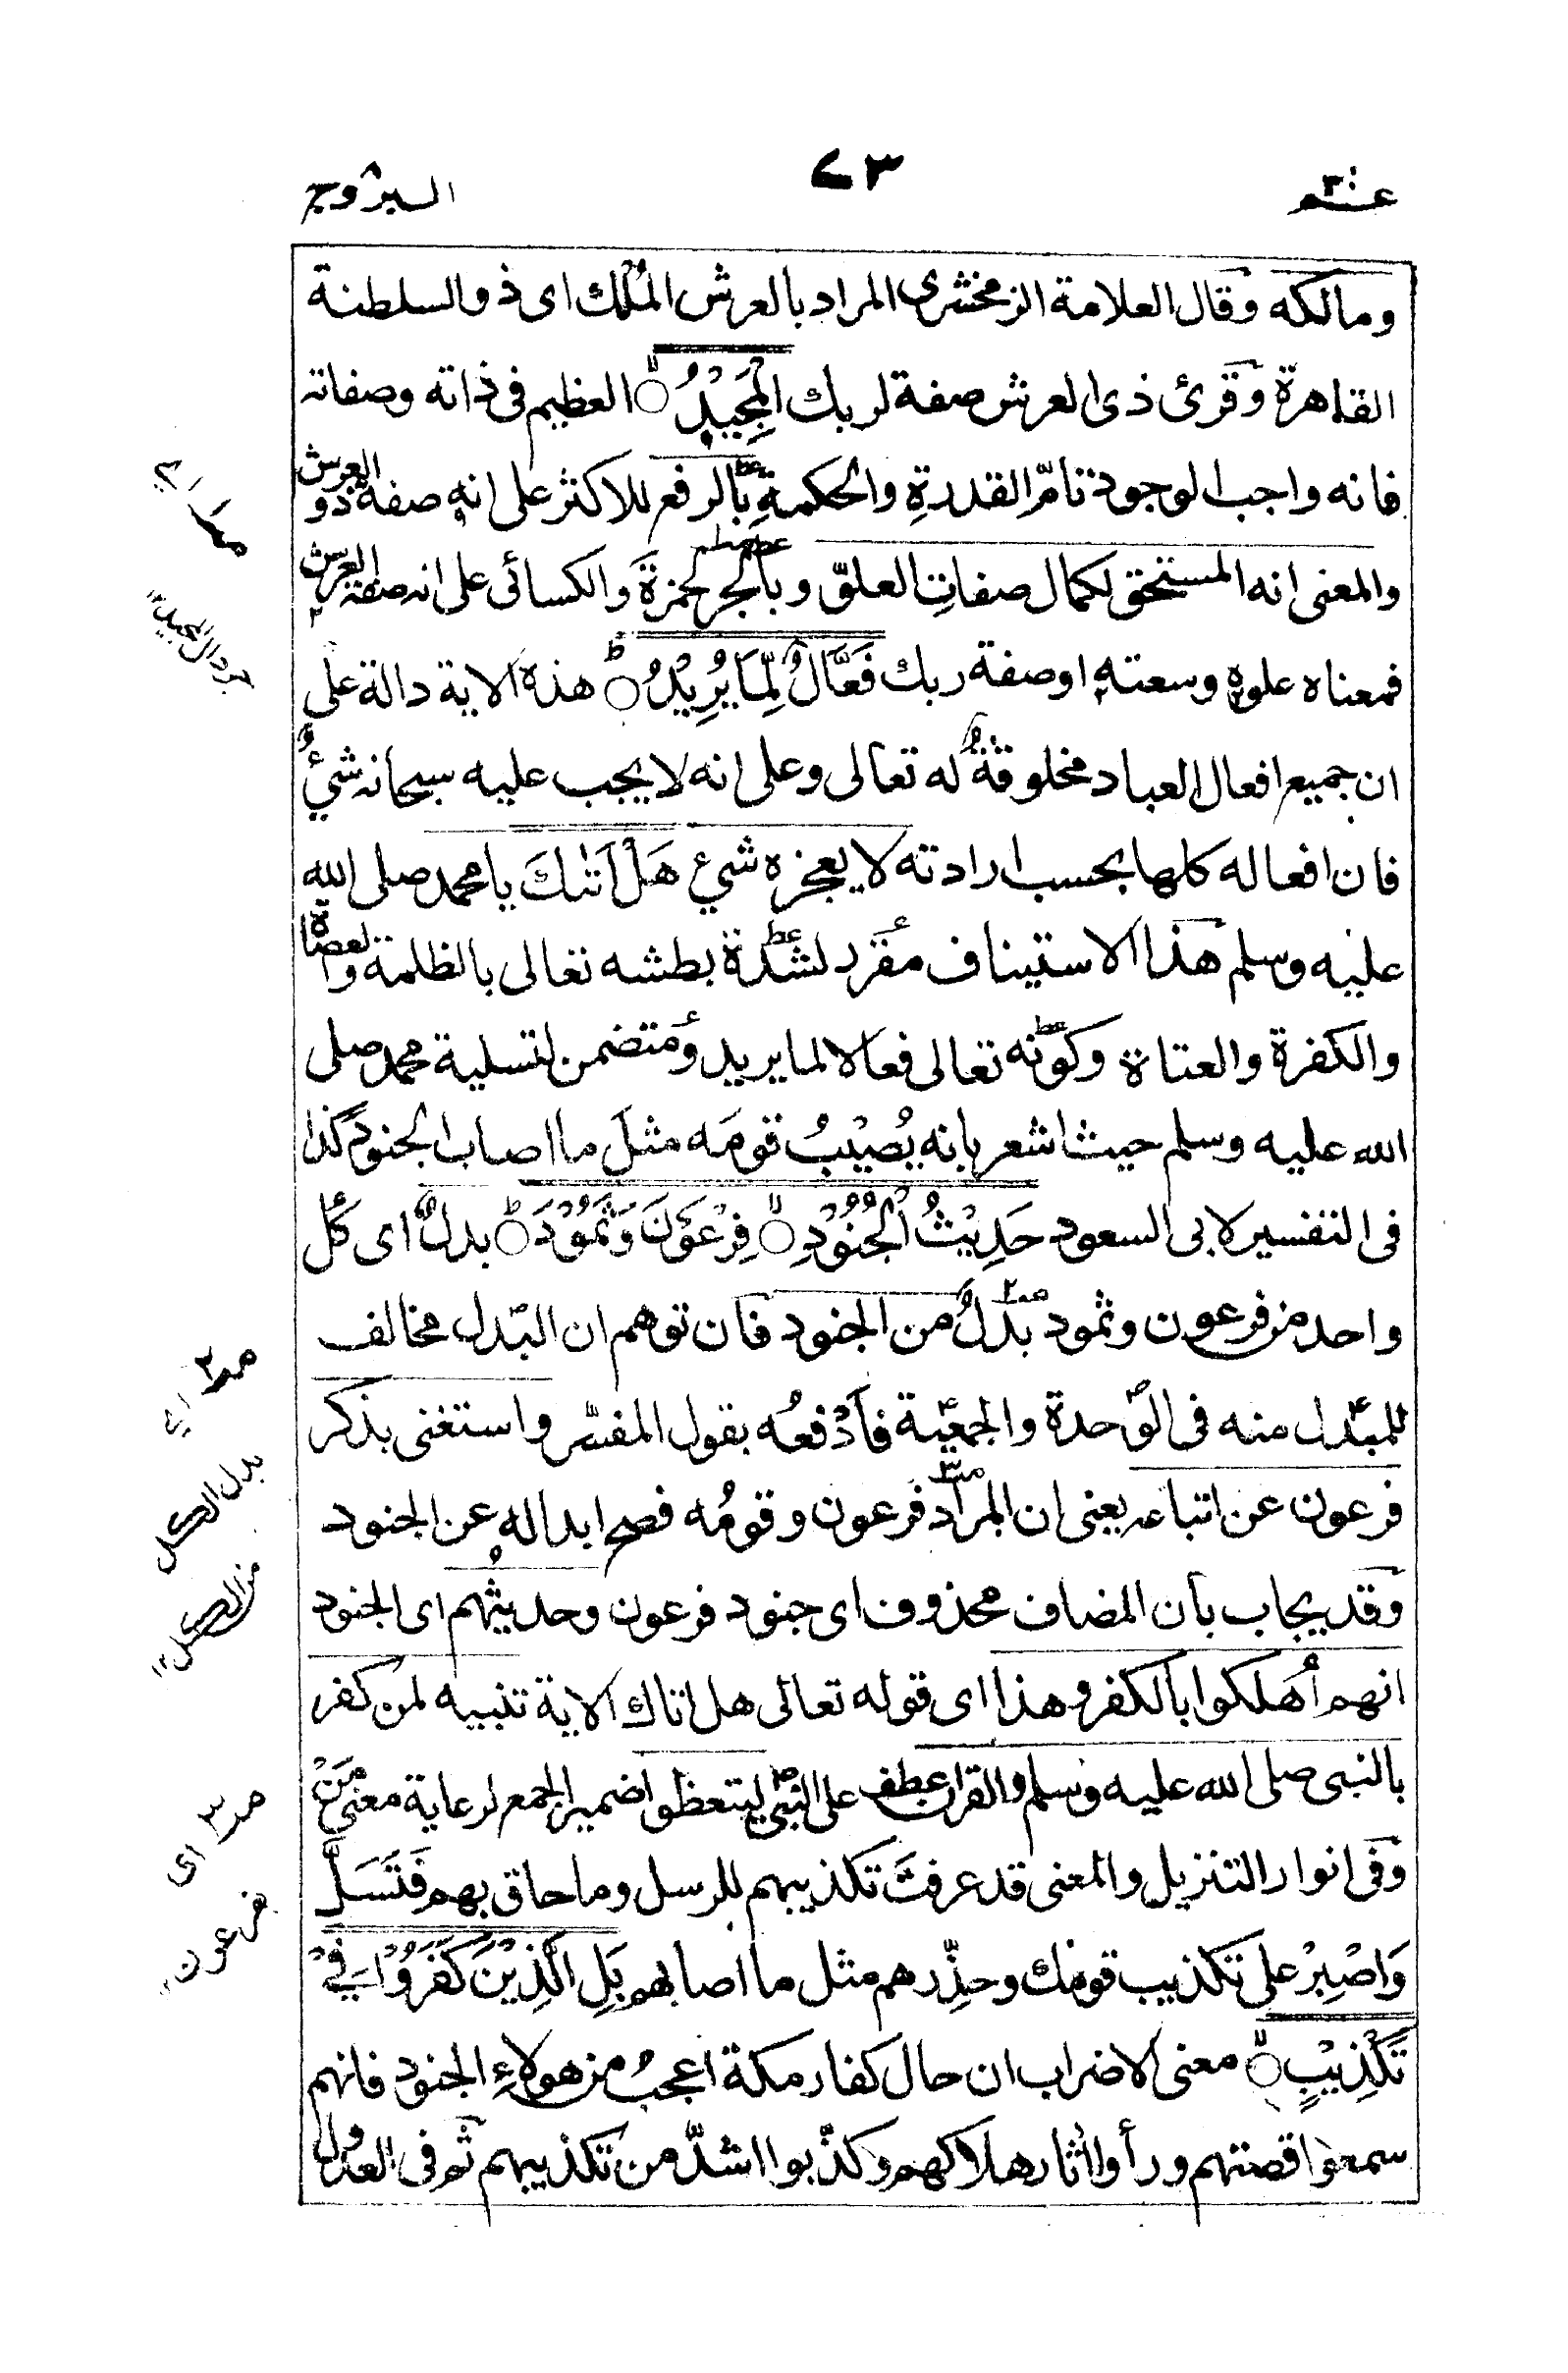 عم ٣٠
٧٣
البروج
ومالكه وقال العلامة الزمخشري المراد بالعرش المُلْك اى ذو السلطنة
القاهرة وقرئ ذى العرش صفة لربك الْمَجِيْدُ العظيم فى ذاته وصفاته
فانه واجب الوجود تامّ القدرةِ والحكمةِ بالرفع للاكثر على انه صفة ذو العرش
والمعنى انه المستحق لكمال صفاتِ العلوّ وبالجر لحمزةَ والكسائى على انه صفة العرش
فمعناه علوه وسعته اوصفة ربك فَعَّالٌ لِّمَا يُرِيْدُ هذه الاية دالة على
ان جميع افعال العباد مخلوقةٌ له تعالى وعلى انه لا يجب عليه سبحانه شيءٌ
فان افعاله كلها بحسب ارادته لا يعجزه شيء هَلْ اَتٰىكَ يا محمد صلى الله
عليه وسلم هذا الاستيناف مقرر لشدة بطشه تعالى بالظلمة والعصاة
والكفرة والعتاة وكونه تعالى فعالا لما يريد ومتضمن لتسلية محمد صلى
الله عليه وسلم حيث اشعر بانه يُصيْبُ قومَه مثلَ ما اصاب الجنودَ كذا
فى التفسير لابى السعود حَدِيْثُ الْجُنُوْدِ فِرْعَوْنَ وَثَمُوْدَ بدلٌ اى كل
واحد من فرعون وثمود بدلٌ من الجنود فان توهم ان البدل مخالف
للمبدل منه فى الوحدة والجمعية فادْفعُه بقول المفسّر واستغنى بذكر
فرعون عن اتباعه يعنى ان المراد فرعون وقومُه فصح ابداله عن الجنود
وقد يجاب بان المضاف محذوف اى جنود فرعون وحديثهم اى الجنود
انهم أهلكوا بالكفر وهذا اى قوله تعالى هل اتاك الاية تنبيه لمن كفر
بالنبى صلى الله عليه وسلم والقران عطف على النبى ليتعظوا ضمير الجمع لرعاية معنى مَنْ
وفى انوار التنزيل والمعنى قد عرفتَ تكذيبهم للرسل وما حاق بهم فَتَسَلَّ
وَاصْبِرْ على تكذيب قومك وحذِّرهم مثل ما اصابهم بَلِ الَّذِيْنَ كَفَرُوْا فِيْ
تَكْذِيْبٍ معنى الاضراب ان حال كفار مكة اعجبُ من هولاءِ الجنود فانهم
سمعوا قصتهم ورأوا اثار هلاكهم وكذّبوا اشدّ من تكذيبهم ثم فى العدول
صـ٢ اي
بدل الكل
من الكل
صـ٣ اى
فرعون